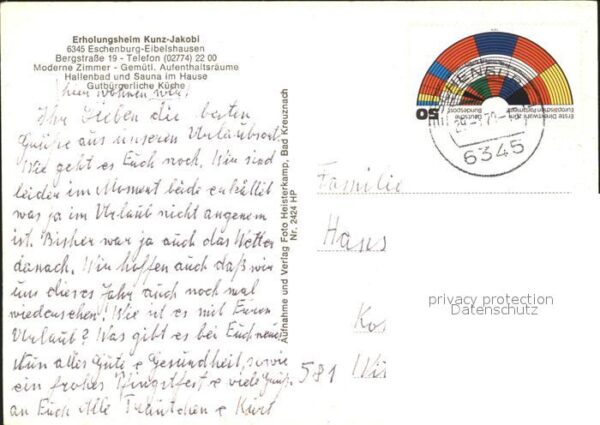 Erholungsheim Kunz-Jakobi
6345 Eschenburg-Eibelshausen
Bergstraße 19 - Telefon (02774) 22 00
Moderne Zimmer - Gemütl. Aufenthaltsräume
Hallenbad und Sauna im Hause
Gutbürgerliche Küche
hier wohnen wir!
Ihr Lieben die besten
Grüße aus unseren Urlaubsort.
Wie geht es Euch noch. Wir sind
leider im Moment beide erkältet
was ja im Urlaub nicht angenem
ist. Bisher war ja auch das Wetter
danach. Wir hoffen auch daß wir
uns dieses Jahr auch noch mal
wiedersehen! Wie ist es mit Euren
Urlaub? Was gibt es bei Euch neues
Nun alles Gute e Gesundheit, sowie
ein frohes Pfingstfest e viele Grüße
an Euch Alle Träutchen e Kurt
Aufnahme und Verlag Foto Heisterkamp, Bad Kreuznach
Nr. 2424 HP
Erste Direktwahl zum
Europäischen Parlament
Deutsche
Bundespost
50
6345
Familie
Hans
Kos
581 Wit
privacy protection
Datenschutz